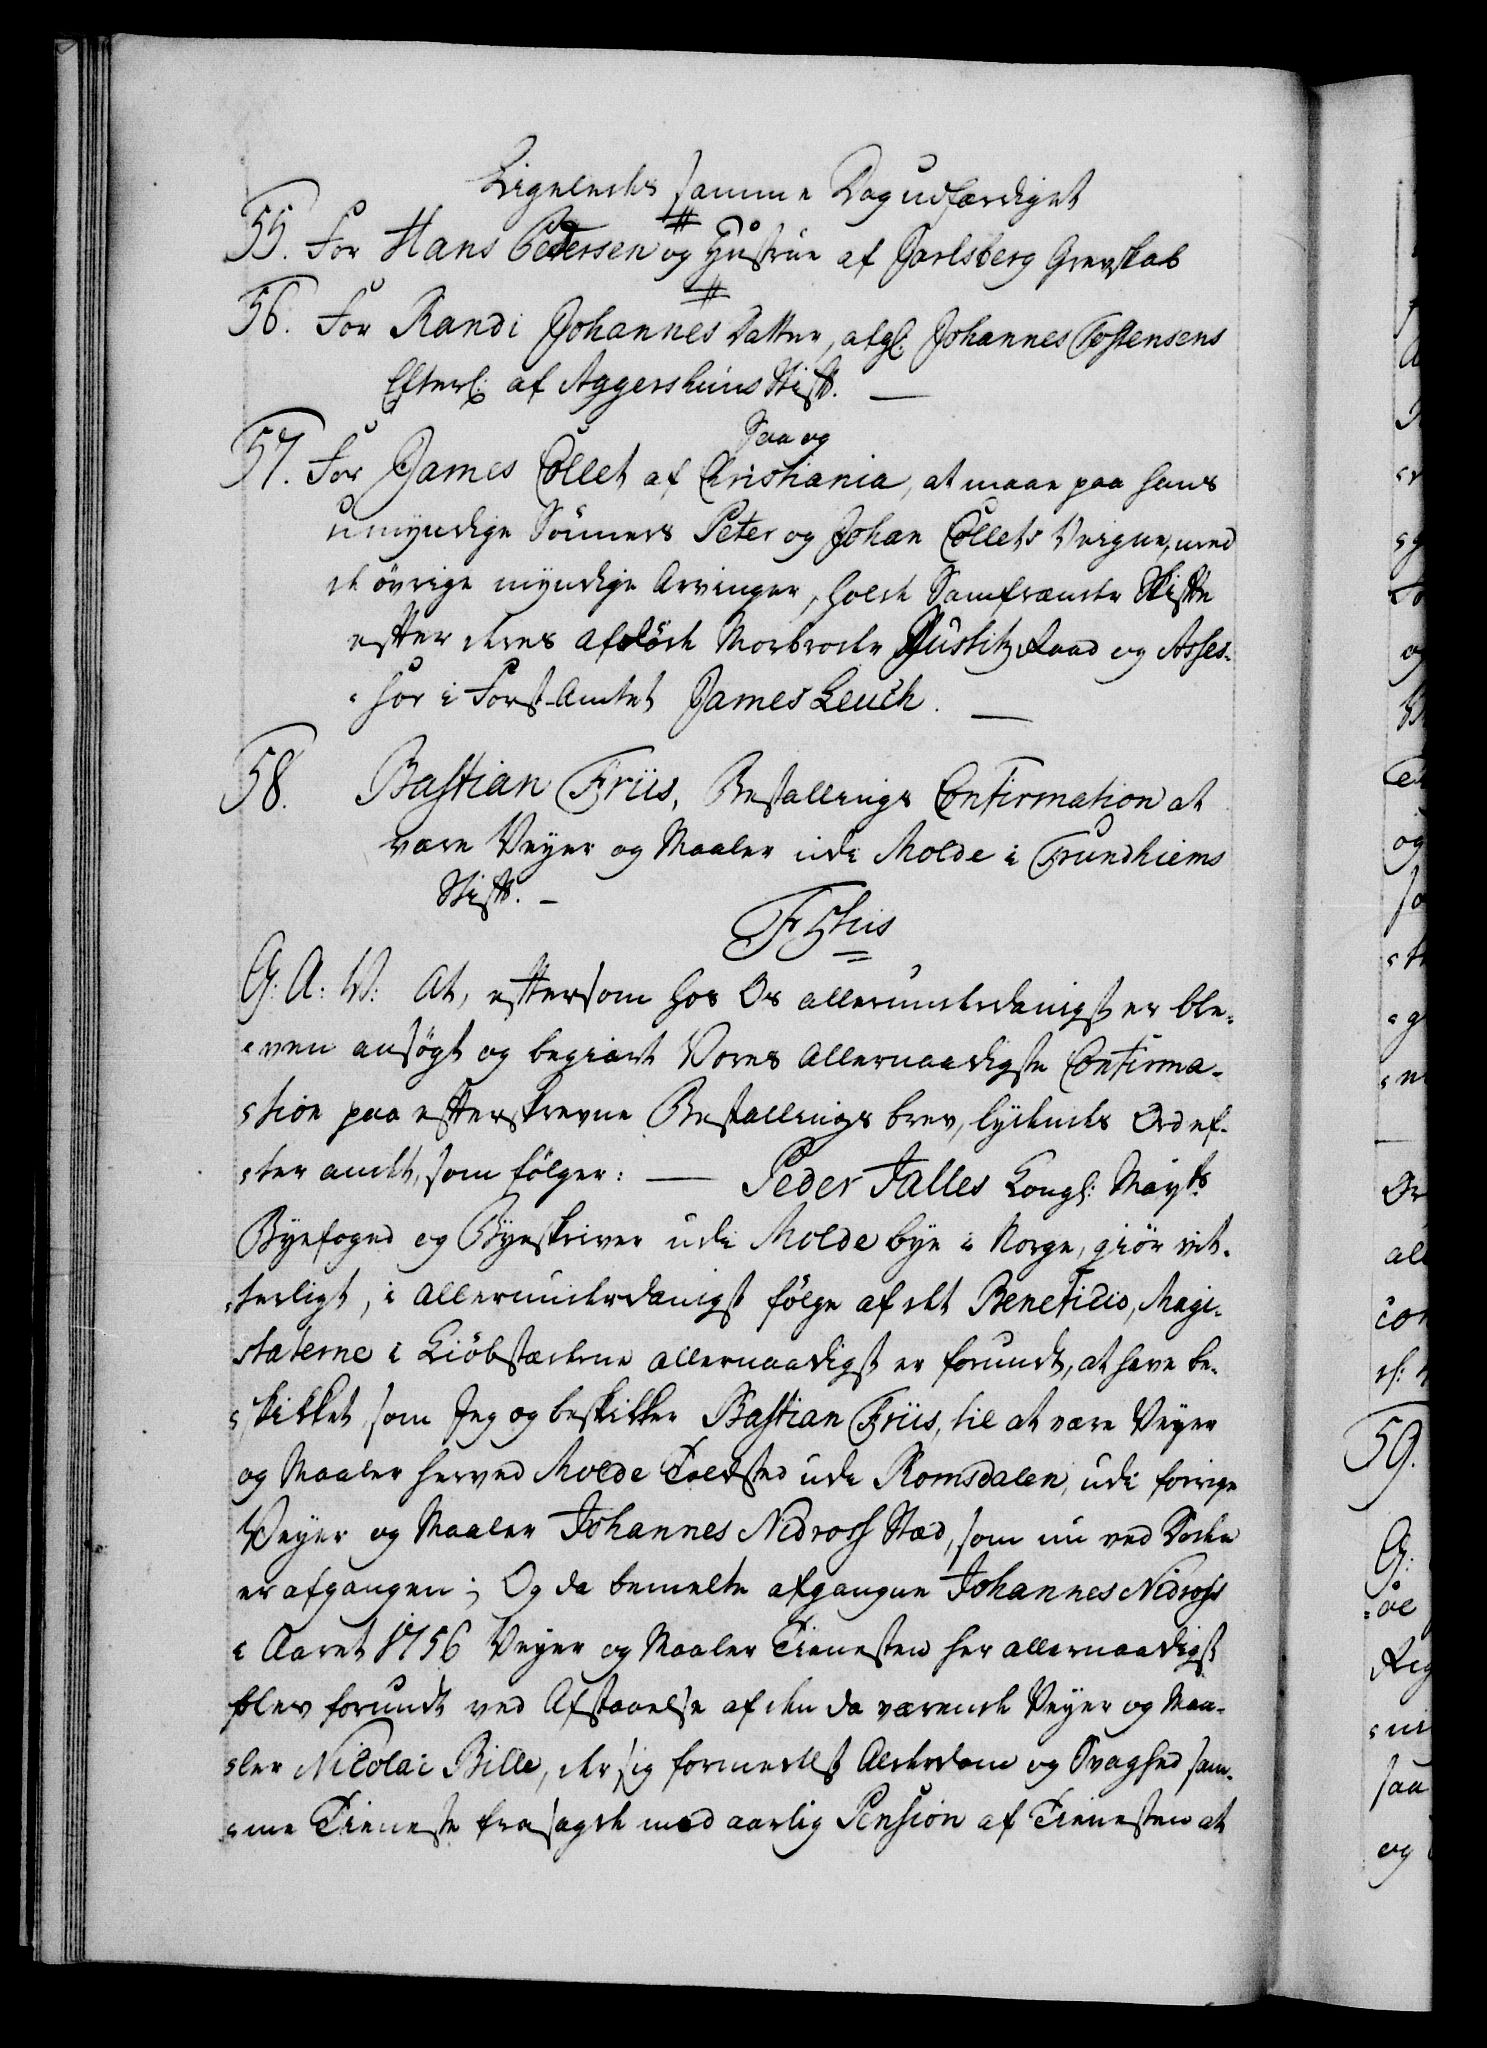 Ligeledes samme Dag udfærdiget
55. For Hans Pedersen og Hustrue af Jarlsberg Grevskab
56. For Randi Johannes Datter, afg: Johannes Tostensens
Efterl: af Aggershuus Stift. —
Saa og
57. For James Collet af Christiania, at maae paa hans
umyndige Sönners Peter og Johan Collets Veigne, med
de övrige myndige Arvinger, holde Samfrænde Skifte
efter deres afdöde Morbroder Justitz Raad og Asses-
sor i Forst-Amtet James Leuch. —
58. Bastian Friis, Bestallings Confirmation at
være Veyer og Maaler udi Molde i Trundhiems
Stift. —
F 5tus
G: A: V: At, eftersom hos Os allerunderdanigst er ble-
ven ansögt og begiært Vores Allernaadigste Confirma-
tion paa efterskrevne Bestallings brev, lydendes Ord ef-
ter andet, som fölger: — Peder Falles Kongl: Mayts
Byefoged og Byeskriver udi Molde bye i Norge, giör vit-
terligt, i allerunderdanigst fölge af det Beneficio, Magi-
staterne i Kiöbstæderne allernaadigst er forundt, at have be-
skikket, som Jeg og beskikker Bastian Friis, til at være Veyer
og Maaler herved Molde Toldsted udi Romsdalen, udi forrige
Veyer og Maaler Johannes Nidross Stæd, som nu ved Döden
er afgangen; Og da bemelte afgangne Johannes Nidross
i Aaret 1756 Veyer og Maaler Tienesten her allernaadigst
blev forundt ved Afstaaelse af den da værende Veyer og Maa-
ler Nicolai Bille, der sig formedelst Alderdom og Svaghed sam-
me Tieneste frasagde med aarlig Pension af Tienesten at
59.